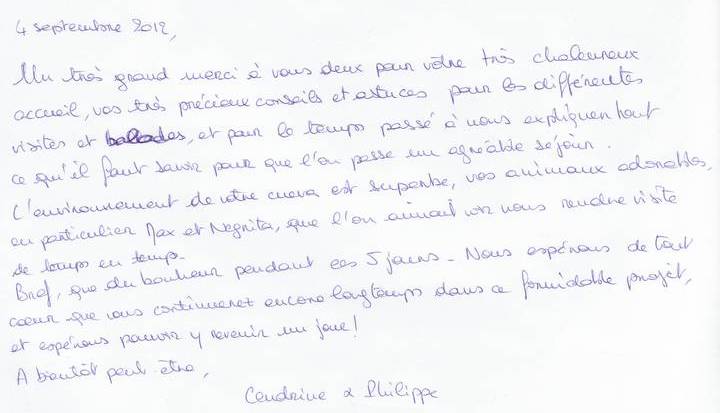 4 septembre 2012,
Un très grand merci à vous deux pour vôtre très chaleureux
accueil, vos très précieux conseils et astuces pour les différentes
visites et ballades, et pour le temps passé à nous expliquer tout
ce qu'il faut savoir pour que l'on passe un agréable séjour.
L'environnement de votre cueva est superbe, vos animaux adorables,
en particulier Max et Negrita, que l'on aimait voir nous rendre visite
de temps en temps.
Bref, que du bonheur pendant ces 5 jours - Nous espérons de tout
cœur que vous continuerez encore longtemps dans ce formidable projet,
et espérons pouvoir y revenir un jour!
A bientôt peut être,
Cendrine & Philippe